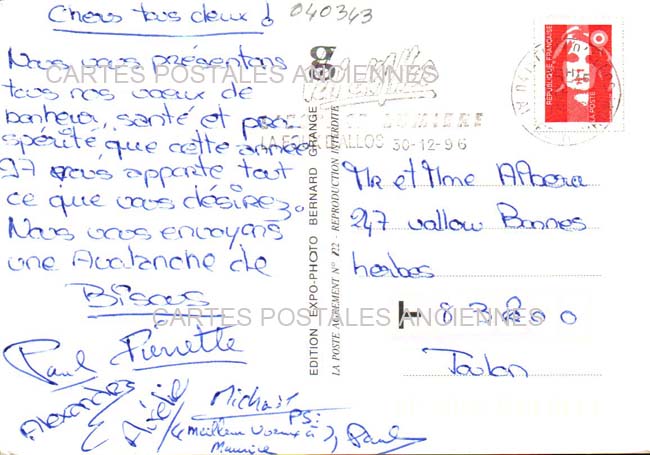 Chers tous deux !
040343
Nous vous présentons
tous nos voeux de
bonheur, santé et pros-
périté que cette année
97 vous apporte tout
ce que vous désirez.
Nous vous envoyons
une Avalanche de
Bisous
Paul Pierrette
Alexandre
Michaël
PS:
Meilleurs voeux à
Maurice
Paul
CARTES POSTALES ANCIENNES
CARTES POSTALES ANCIENNES
EDITION EXPO-PHOTO BERNARD GRANGE
LA POSTE AGREMENT N° 122 - REPRODUCTION INTERDITE
REPUBLIQUE FRANÇAISE
LA POSTE
LUMIERE
LA FOUX D'ALLOS 30-12-96
Mr et Mme Albera
247 vallon Bonnes
herbes
83200
Toulon